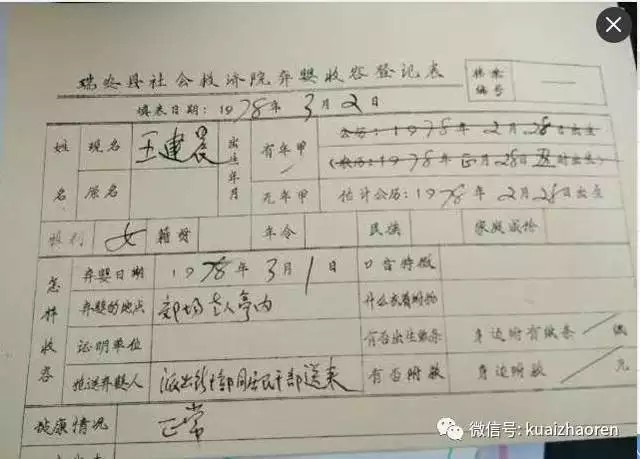 瑞安县社会救济院弃婴收容登记表
档案编号 ——
填表日期：1978年3月2日
姓名 现名 王建晨 出生年月 有年甲 公历：1978年2月28日出生
(农历：1978年正月28日 时出生)
原名 无年甲 估计公历：1978年2月28日出生
性别 女 籍贯 年令 民族 家庭成份
怎样收容 弃婴日期 1978年3月1日 口音特徵
弃婴的地点 老人亭内 什么衣着附物
证明单位 有否出生纸条 身边附有纸条 / 张
推送弃婴人 派出所 同居民干部送来 有否附款 身边附款 / 元
健康情况 正常
微信号: kuaizhaoren